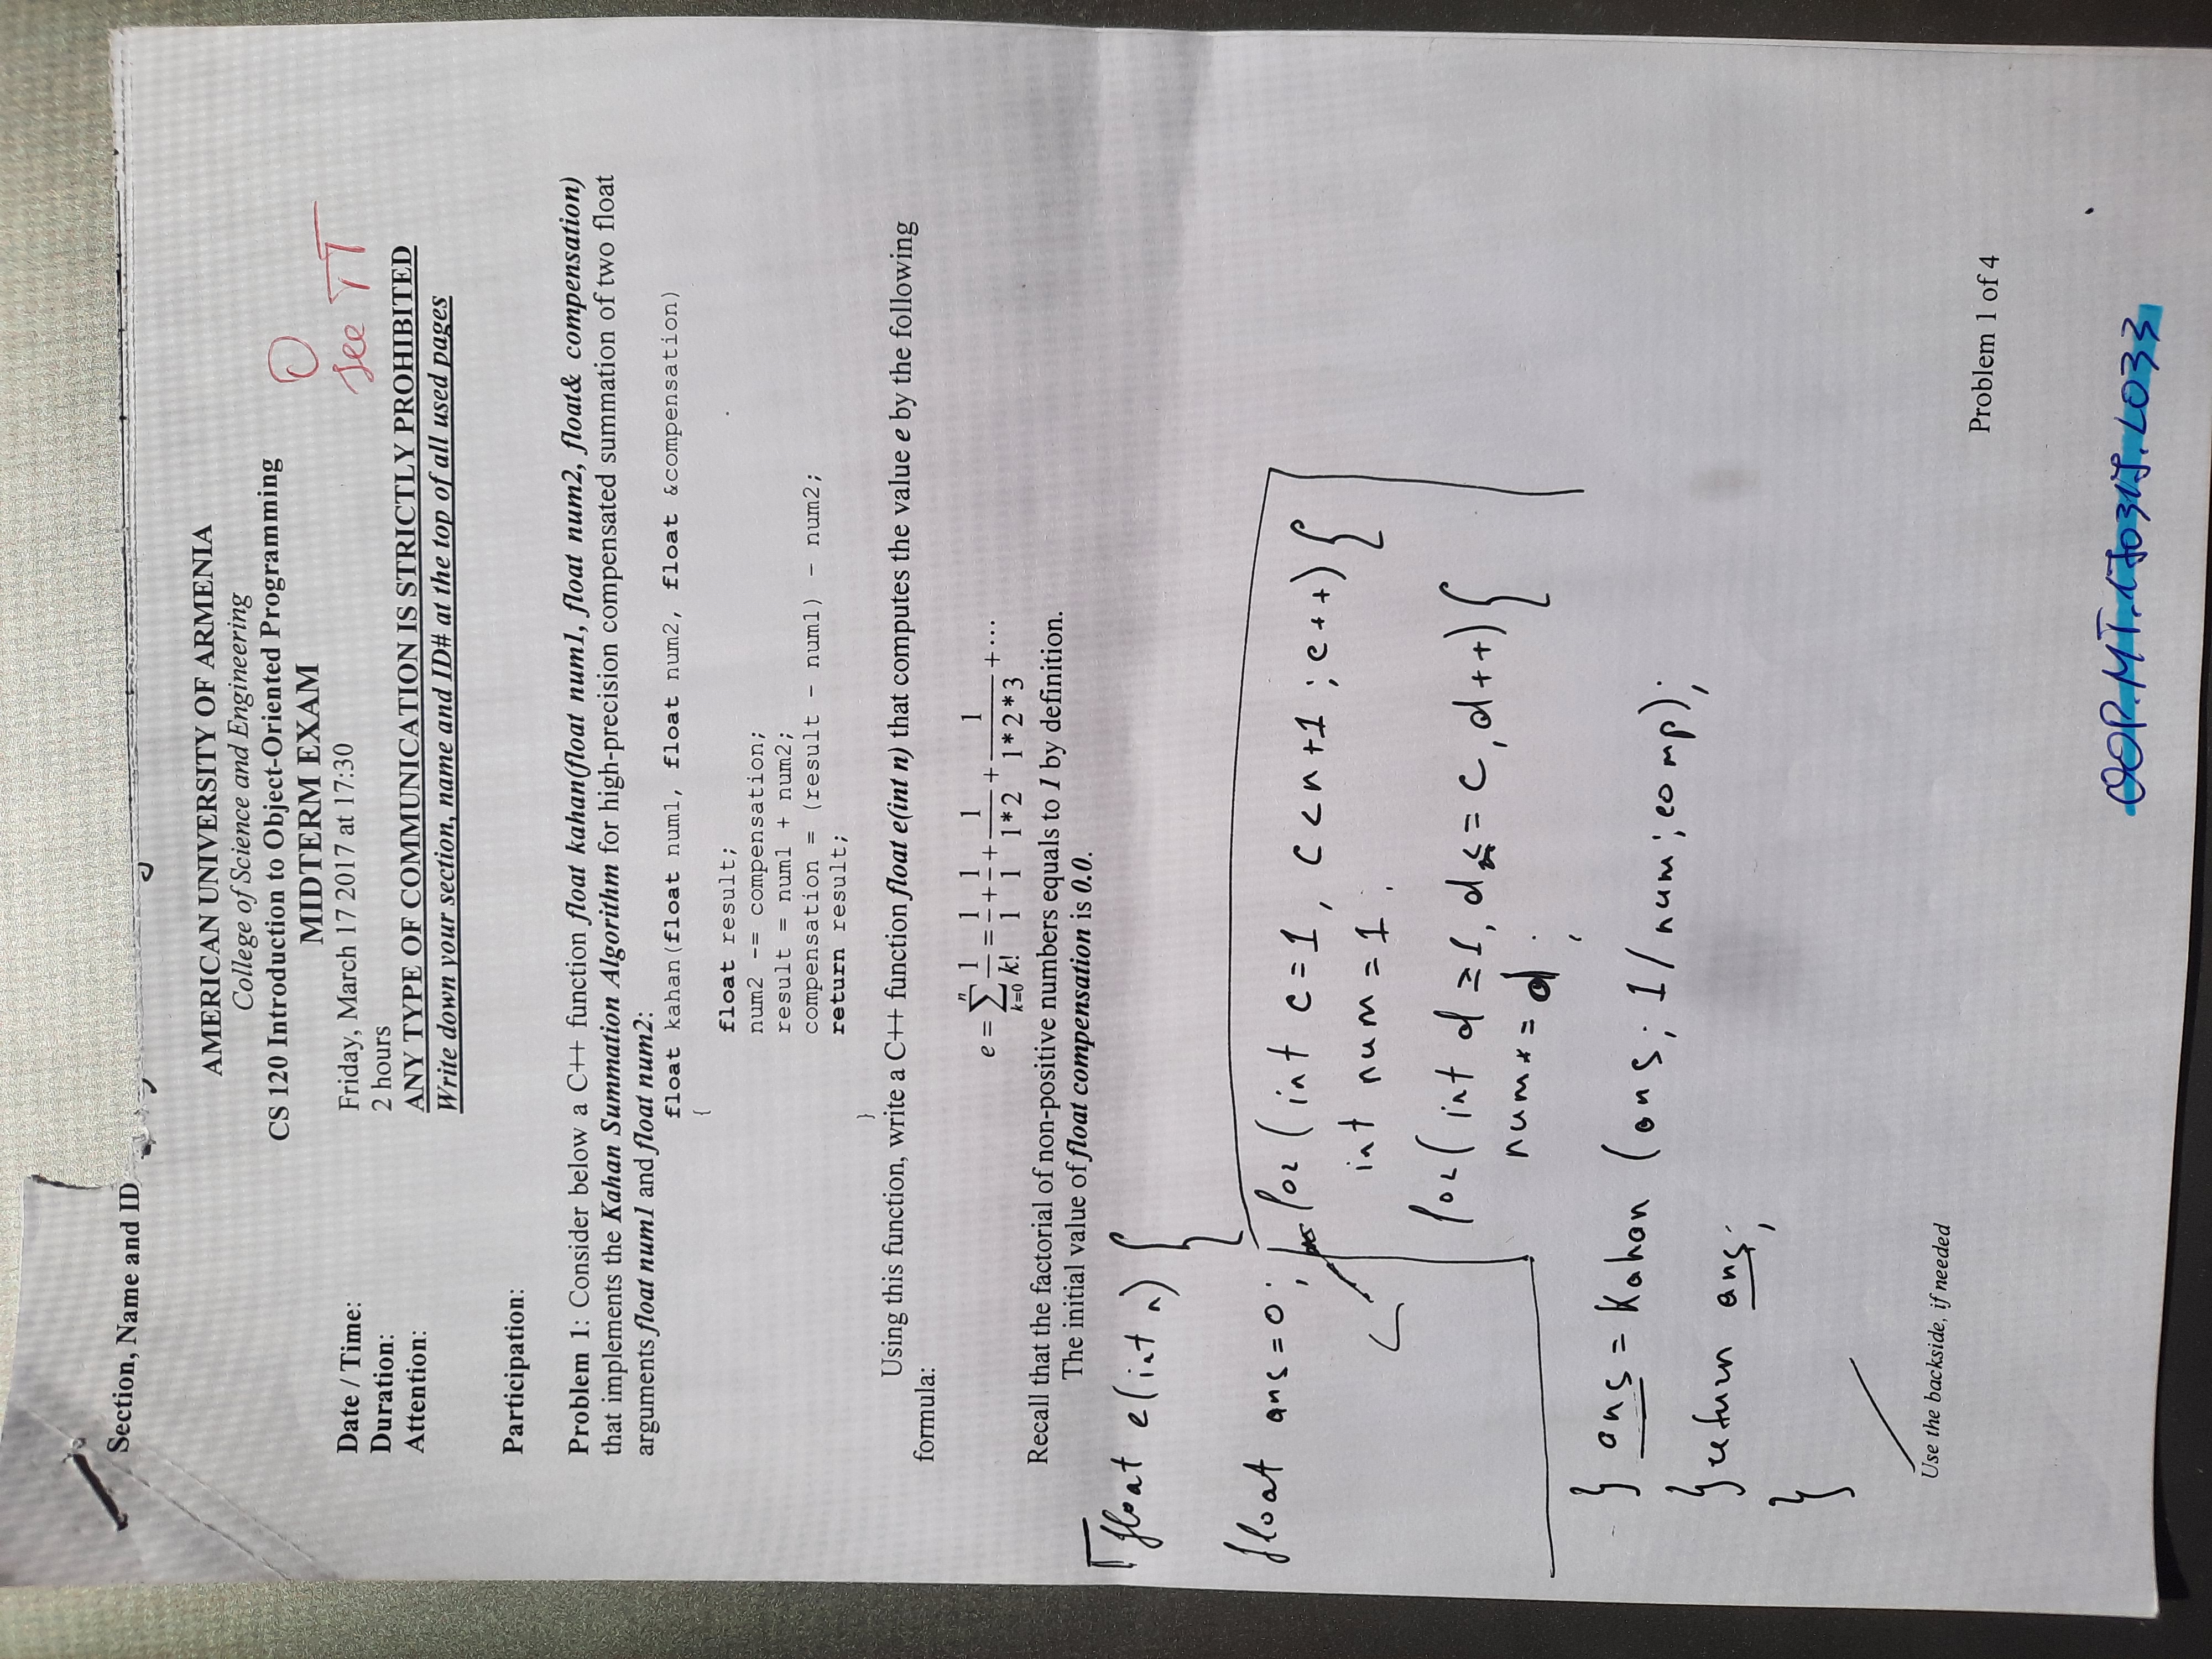 Section, Name and ID
AMERICAN UNIVERSITY OF ARMENIA
College of Science and Engineering
CS 120 Introduction to Object-Oriented Programming
MIDTERM EXAM
O
see TT
Date / Time: Friday, March 17 2017 at 17:30
Duration: 2 hours
Attention: ANY TYPE OF COMMUNICATION IS STRICTLY PROHIBITED
Write down your section, name and ID# at the top of all used pages
Participation:
Problem 1: Consider below a C++ function float kahan(float num1, float num2, float& compensation)
that implements the Kahan Summation Algorithm for high-precision compensated summation of two float
arguments float num1 and float num2:
float kahan(float num1, float num2, float &compensation)
{
float result;
num2 -= compensation;
result = num1 + num2;
compensation = (result - num1) - num2;
return result;
}
Using this function, write a C++ function float e(int n) that computes the value e by the following
formula:
e = ∑_{k=0}^{n} 1/k! = 1/1 + 1/1 + 1/(1*2) + 1/(1*2*3) + ⋯
Recall that the factorial of non-positive numbers equals to 1 by definition.
The initial value of float compensation is 0.0.
float e(int n) {
float ans=0;
for (int c=1, c<n+1; c++) {
int num=1;
for(int d=1, d<=c, d++) {
num*=d;
} ans = Kahan (ans; 1/num; comp);
} return ans;
}
Use the backside, if needed
Problem 1 of 4
OOP.MT.170317.L033